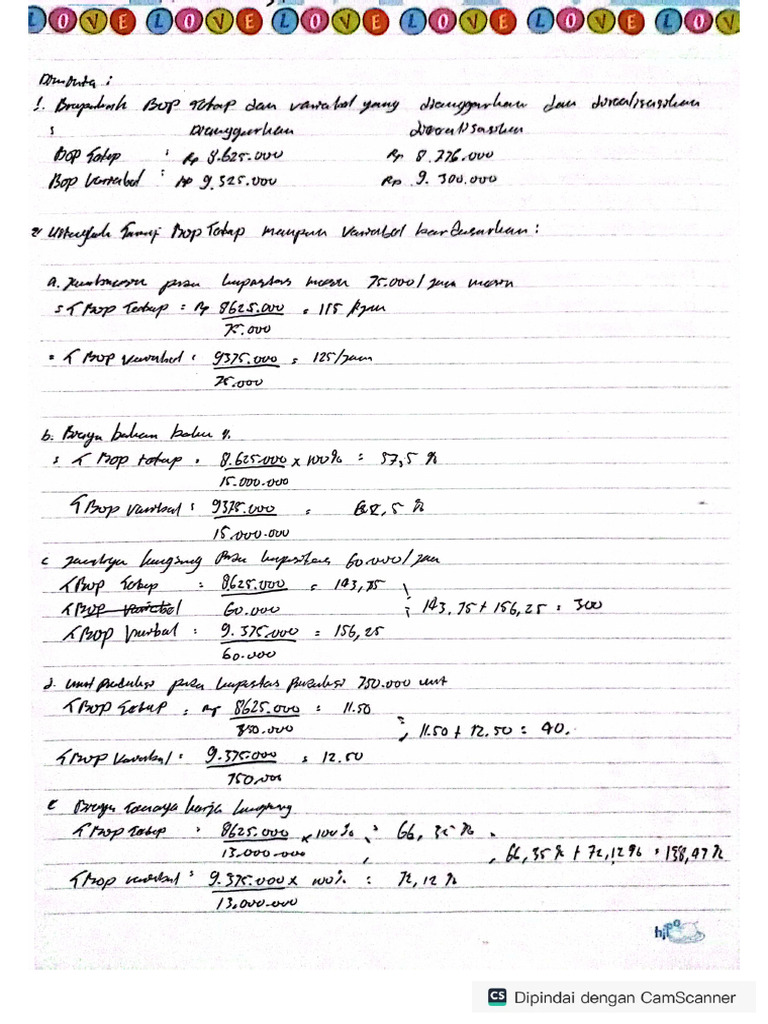 LOVE LOVE LOVE LOVE LOVE LOV
Diminta :
1. Berapakah BOP tetap dan variabel yang dianggarkan dan direalisasikan
: Dianggarkan direalisasikan
BOP Tetap : Rp 8.625.000 Rp 8.776.000
BOP Variabel : Rp 9.325.000 Rp 9.300.000
2. Tarif BOP Tetap maupun Variabel berdasarkan :
a. Jam mesin pada kapasitas mesin 75.000/jam mesin
: T BOP Tetap = Rp 8625.000 = 115 /jam
75.000
= T BOP Variabel : 9375.000 = 125/jam
75.000
b. Biaya bahan baku
: T BOP tetap = 8.625.000 x 100% = 57,5 %
15.000.000
T BOP variabel : 9375.000 = 62,5 %
15.000.000
c langsung pada kapasitas 60.000/jam
T BOP Tetap : 8.625.000 = 143,75
T BOP variabel 60.000 ; 143,75 + 156,25 = 300
T BOP Variabel : 9.375.000 = 156,25
60.000
d. unit produksi pada kapasitas produksi 750.000 unit
T BOP Tetap : Rp 8625.000 = 11.50
850.000 ; 11.50 + 12.50 = 40.
T BOP Variabel : 9.375.000 = 12.50
750.000
e Biaya tenaga kerja langsung
T BOP Tetap : 8625.000 x 100% = 66,35 %
13.000.000 , 66,35 % + 72,12 % = 138,47 %
T BOP variabel = 9.375.000 x 100% = 72,12 %
13,000.000
hipo
CS Dipindai dengan CamScanner